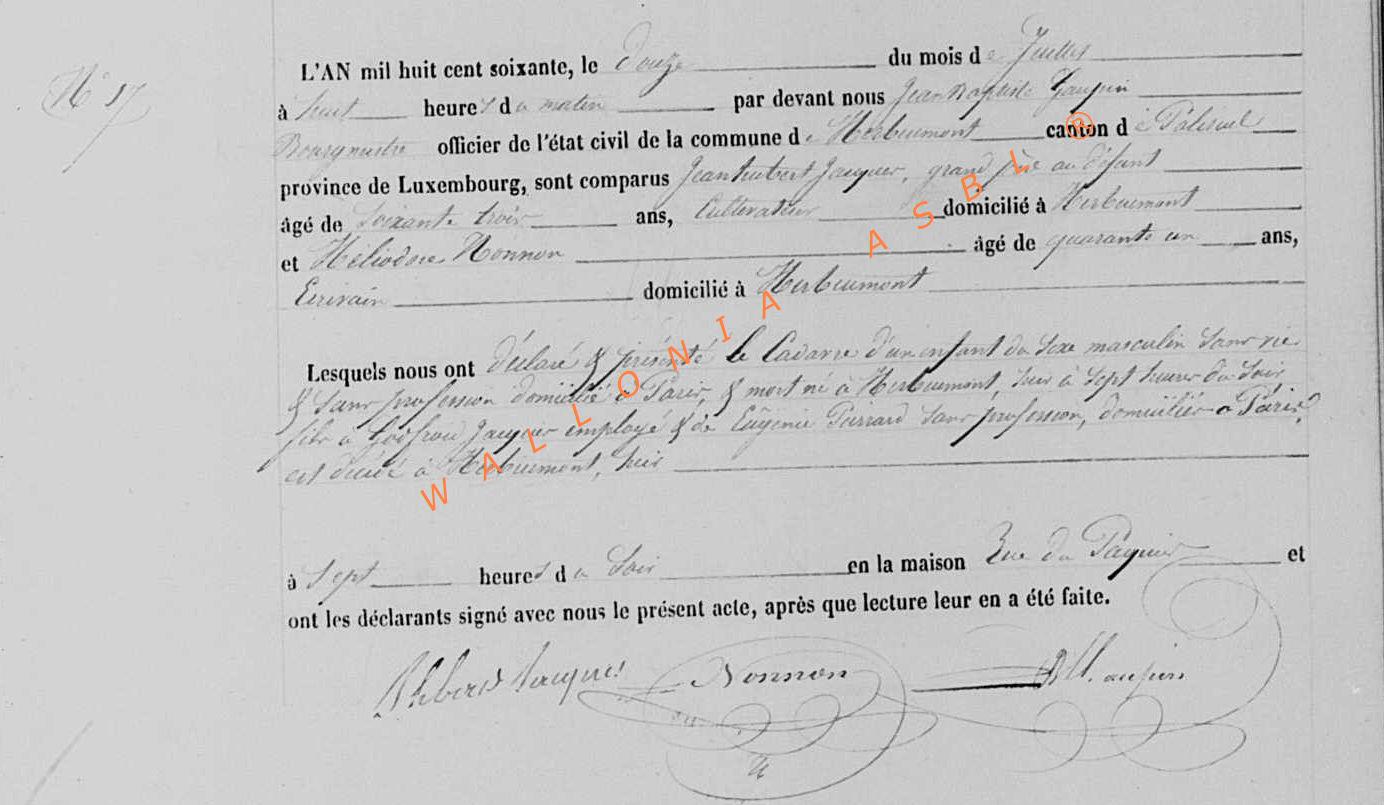 N° 17
L'AN mil huit cent soixante, le Douze du mois de Juillet
à huit heures du matin par devant nous Jean Baptiste Gaupin
Bourgmestre officier de l'état civil de la commune de Herbeumont canton de Paliseul
province de Luxembourg, sont comparus Jean hubert Jacques, grand père au défunt
âgé de soixante trois ans, Cultivateur domicilié à Herbeumont
et Héliodore Nonnon âgé de quarante un ans,
Ecrivain domicilié à Herbeumont
Lesquels nous ont déclaré & présenté le Cadavre d'un enfant du Sexe masculin Sans vie
& Sans profession domicilié à Paris, & mort né à Herbeumont, hier à Sept heures du Soir
fils à Godfroid Jacques employé & de Eugénie Sans profession, domiciliés à Paris,
est décédé à Herbeumont, hier
à Sept heures du Soir en la maison Rue du et
ont les déclarants signé avec nous le présent acte, après que lecture leur en a été faite.
Jacques Nonnon
WALLONIA ASBL ®